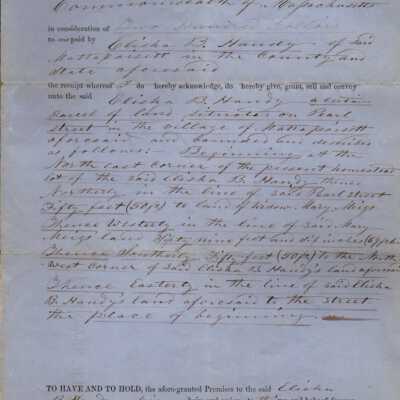 Commonwealth of Massachusetts
in consideration of Two hundred Dollars
to me paid by Elisha B. Handy of said
Mattapoisett in the County and
State aforesaid
the receipt whereof I do hereby acknowledge, do hereby give, grant, sell and convey
unto the said Elisha B. Handy a certain
parcel of land situated on Pearl
street in the village of Mattapoisett
aforesaid and bounded and described
as follows: Beginning at the
North east corner of the present homestead
lot of the said Elisha B. Handy thence
Northerly in the line of said Pearl Street
Fifty feet (50ft) to land of widow Mary Meigs
Thence Westerly in the line of said Mary
Meigs land Sixty nine feet and six inches
Thence Southerly Fifty feet (50ft) to the North
West corner of said Elisha B Handy's land aforesaid
Thence Easterly in the line of said Elisha
B. Handy's land aforesaid to the street
the place of beginning
TO HAVE AND TO HOLD, the afore-granted Premises to the said Elisha
B. Handy his